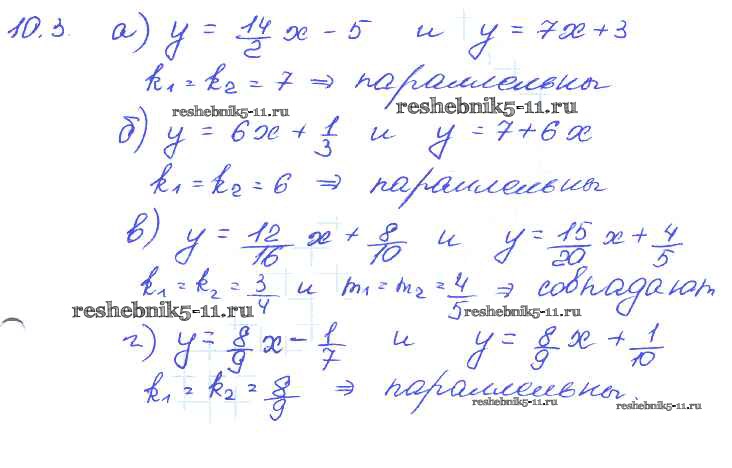 10.3. а) y = 14/2 x - 5 и y = 7x + 3
k₁ = k₂ = 7 ⇒ параллельны
reshebnik5-11.ru reshebnik5-11.ru
б) y = 6x + 1/3 и y = 7 + 6x
k₁ = k₂ = 6 ⇒ параллельны
в) y = 12/16 x + 8/10 и y = 15/20 x + 4/5
k₁ = k₂ = 3/4 и m₁ = m₂ = 4/5 ⇒ совпадают
reshebnik5-11.ru reshebnik5-11.ru
г) y = 8/9 x - 1/7 и y = 8/9 x + 1/10
k₁ = k₂ = 8/9 ⇒ параллельны.
reshebnik5-11.ru reshebnik5-11.ru